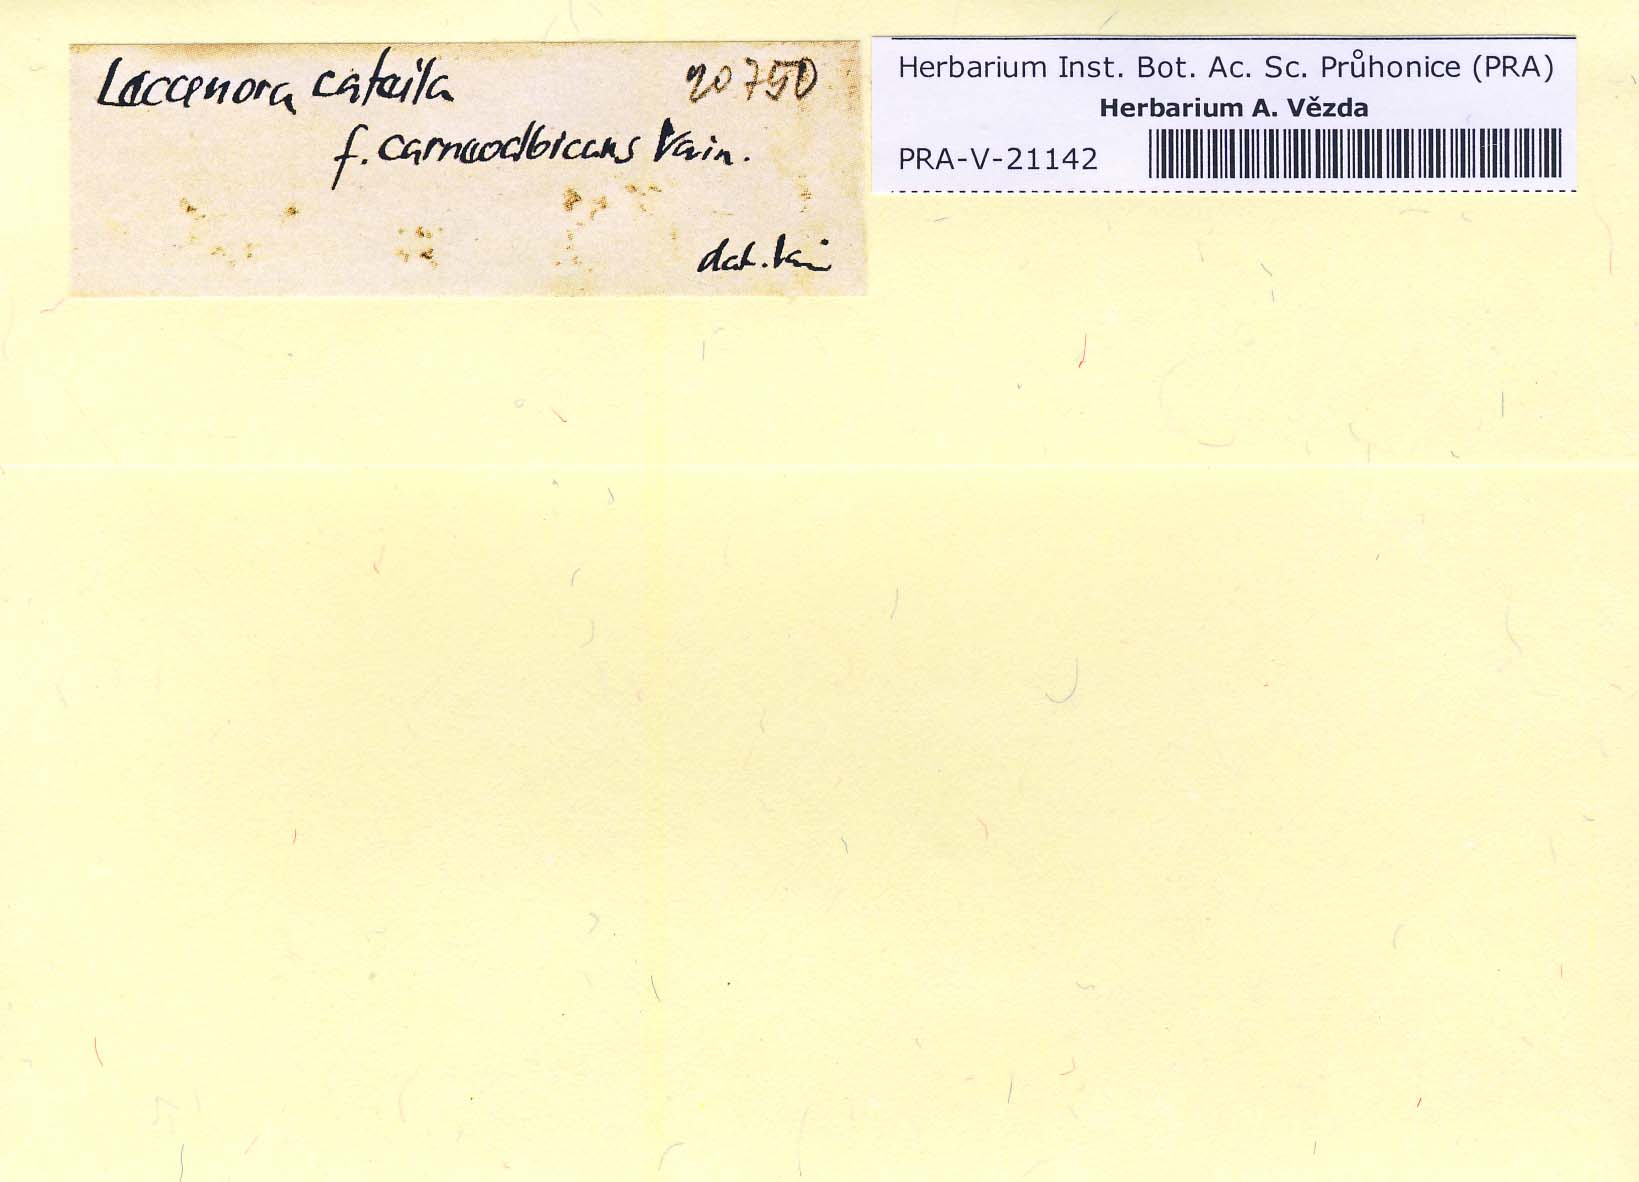 Leccenora cateila 20750
f. carneoalbicans Vain.
det. Vain
Herbarium Inst. Bot. Ac. Sc. Průhonice (PRA)
Herbarium A. Vězda
PRA-V-21142